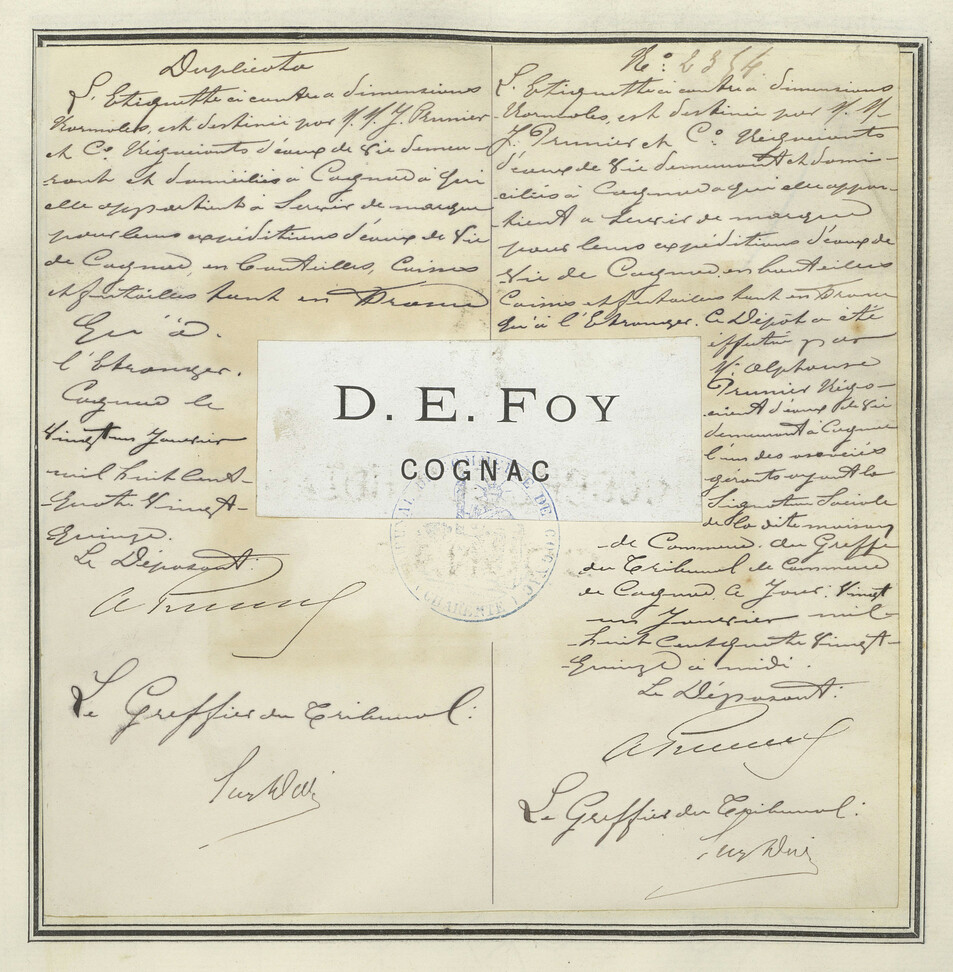 Duplicata
L'Etiquette ci contre à dimensions
Normales, est destinée par M. M. J. Prunier
et Co. Négociants d'eaux de Vie demeu-
-rant et domiciliés à Cognac à qui
elle appartient à Servir de marque
pour leurs expéditions d'eaux de Vie
de Cognac, en bouteilles, Caisses
et futailles tant en France
Qu'à
l'Etranger.
Cognac le
Vingt un Janvier
mil huit cent-
Quatre Vingt-
Quinze.
Le Déposant:
A Prunier
Le Greffier du Tribunal:
No: 2354
L'Etiquette ci contre à dimensions
Normales, est destinée par M. M.
J. Prunier et Co. Négociants
d'eaux de Vie demeurant et domi-
-ciliés à Cognac à qui elle appar-
-tient à Servir de marque
pour leurs expéditions d'eaux de
Vie de Cognac, en bouteilles
Caisses et futailles tant en France
Qu'à l'Etranger. Ce Dépôt a été
effectué par
M. Alphonse
Prunier Négo-
-ciant d'eaux de Vie
demeurant à Cognac
l'un des associés
gérants ayant la
Signature Sociale
de la dite maison
de Commerce. Au Greffe
du Tribunal de Commerce
de Cognac. Ce Jour Vingt
un Janvier mil-
huit cent quatre Vingt-
Quinze à midi.
Le Déposant:
A Prunier
Le Greffier du Tribunal:
D. E. FOY
COGNAC
TRIBUNAL DE COMMERCE DE COGNAC
(CHARENTE)